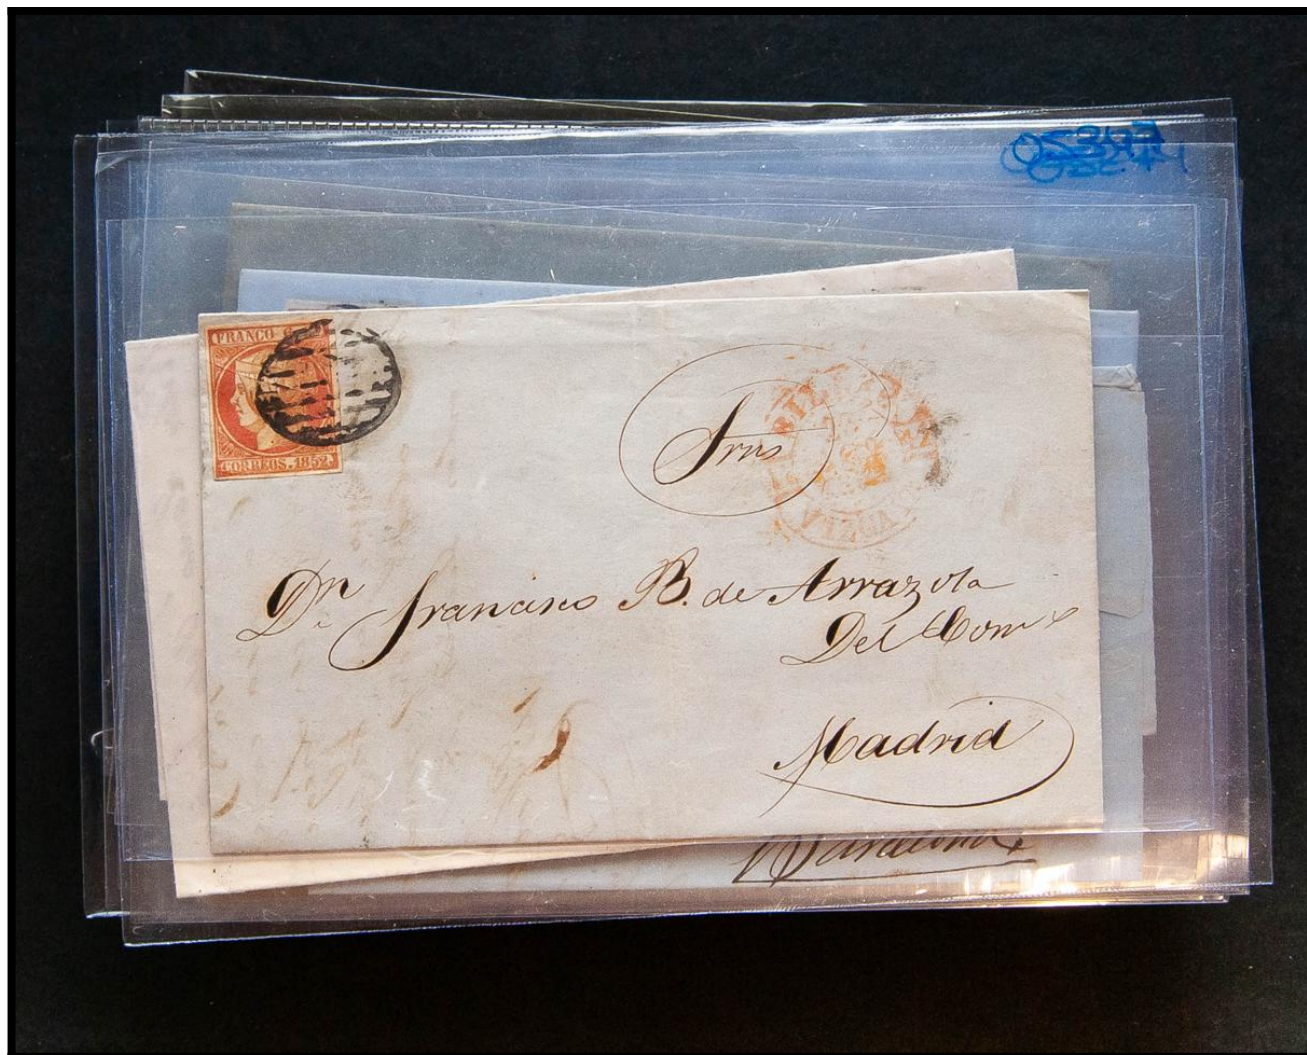 FRANCO 6
CORREOS. 1852.
Frns
Dn Francisco B. de Arrazola
Del Comº
Madrid
Barcelona